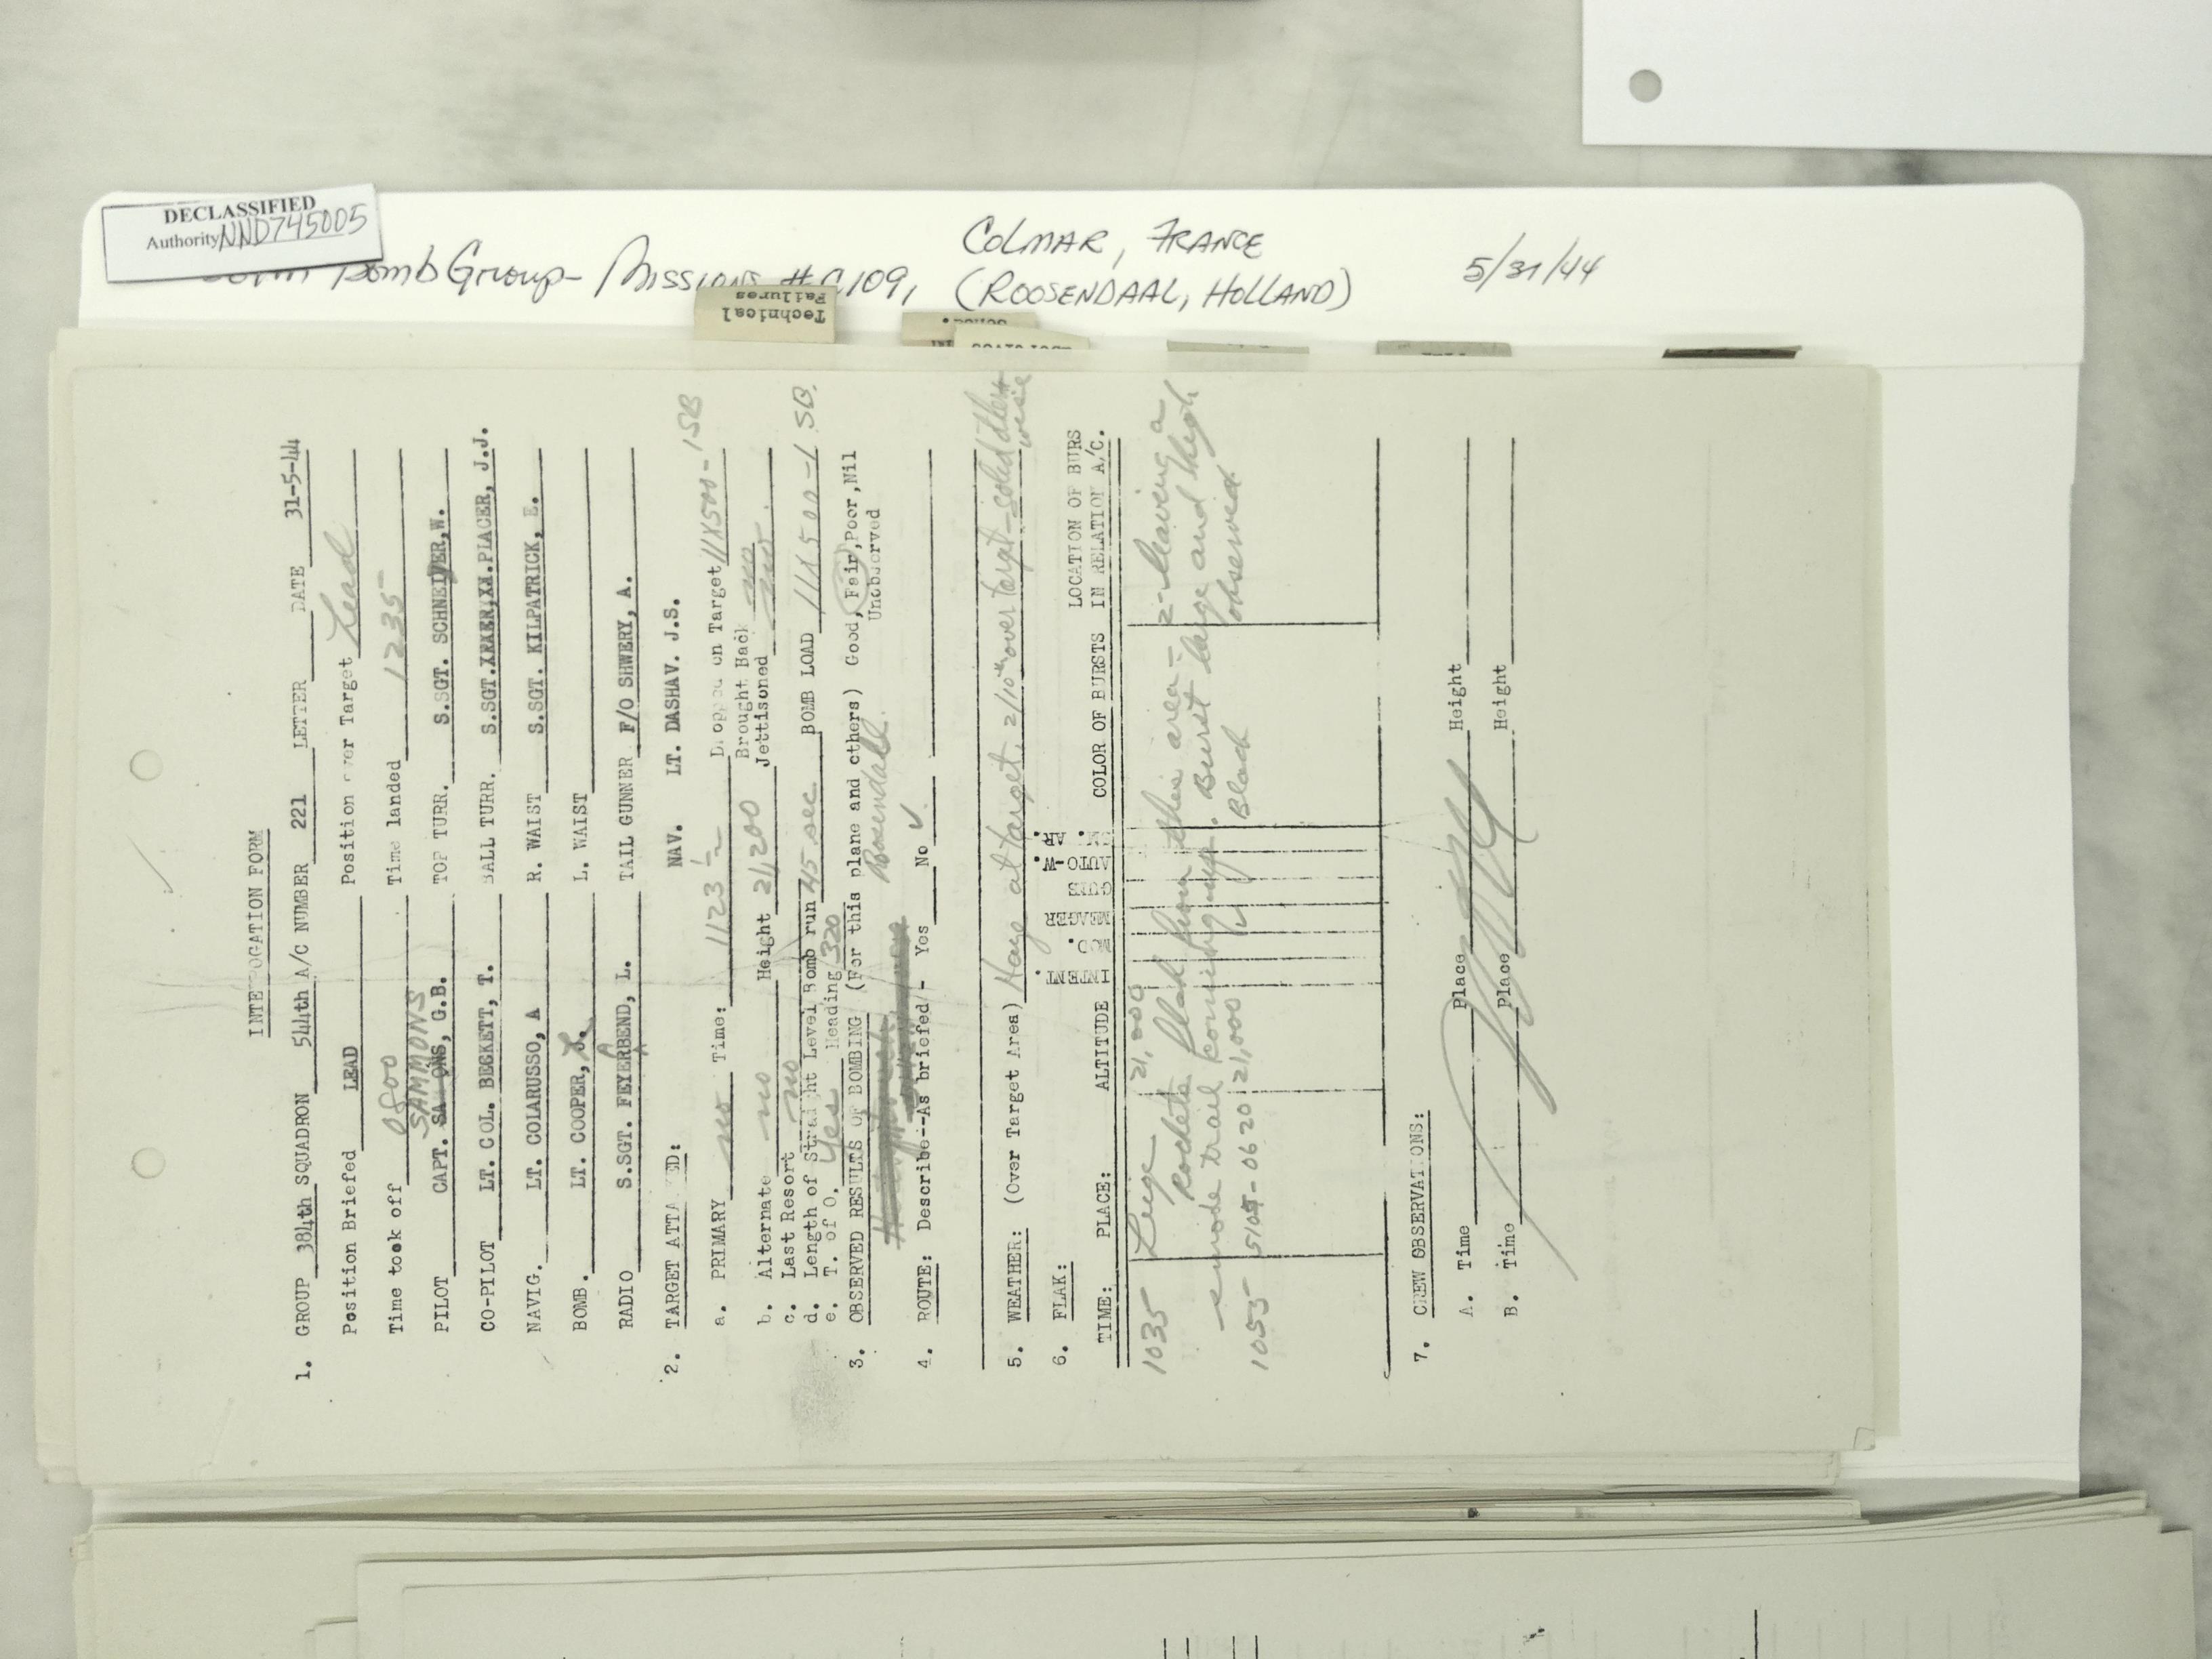 DECLASSIFIED
Authority NND745005
Bomb Group - Missions # 109,
COLMAR, FRANCE
(ROOSENDAAL, HOLLAND)
5/31/44
Technical
Failures
INTERROGATION FORM
1. GROUP 384th SQUADRON 544th A/C NUMBER 221 LETTER DATE 31-5-44
Position Briefed LEAD Position over Target Lead
Time took off 0800 Time landed 1235
SAMMONS
PILOT CAPT. G.B. TOP TURR. S.SGT. SCHNEIDER, W.
CO-PILOT LT. COL. BECKETT, T. BALL TURR. S.SGT. PLACER, J.J.
NAVIG. LT. COLARUSSO, A R. WAIST S.SGT. KILPATRICK, E.
BOMB. LT. COOPER, L. WAIST
RADIO S.SGT. FEYERBEND, L. TAIL GUNNER F/O SHWERY, A.
NAV. LT. DASHAV. J.S.
2. TARGET ATTACKED:
a. PRIMARY no Time: 1123 1/2 Dropped on Target 11X500-1SB
Brought Back no
b. Alternate no Height 21,200 Jettisoned no.
c. Last Resort no
d. Length of Straight Level Bomb run 45 sec BOMB LOAD 11X500-1 SB.
e. T. of O. Yes Heading 320
3. OBSERVED RESULTS OF BOMBING (For this plane and others) Good, Fair, Poor, Nil
Unobserved
Rosendall.
4. ROUTE: Describe--As briefed - Yes No ✓
5. WEATHER: (Over Target Area) Haze at target, 2/10ths over target - solid otherwise
6. FLAK:
TIME: PLACE: ALTITUDE INTENT. MOD. MEAGER GUNS AUTO-W. SM. AR. COLOR OF BURSTS LOCATION OF BURS IN RELATION A/C.
1035 Liege 21,000
Rockets flak from this area - 2 - leaving a
smoke trail coming up. Burst large and high
1055 0620 21,000 ✓ Black observed
7. CREW OBSERVATIONS:
A. Time Place Height
B. Time Place Height